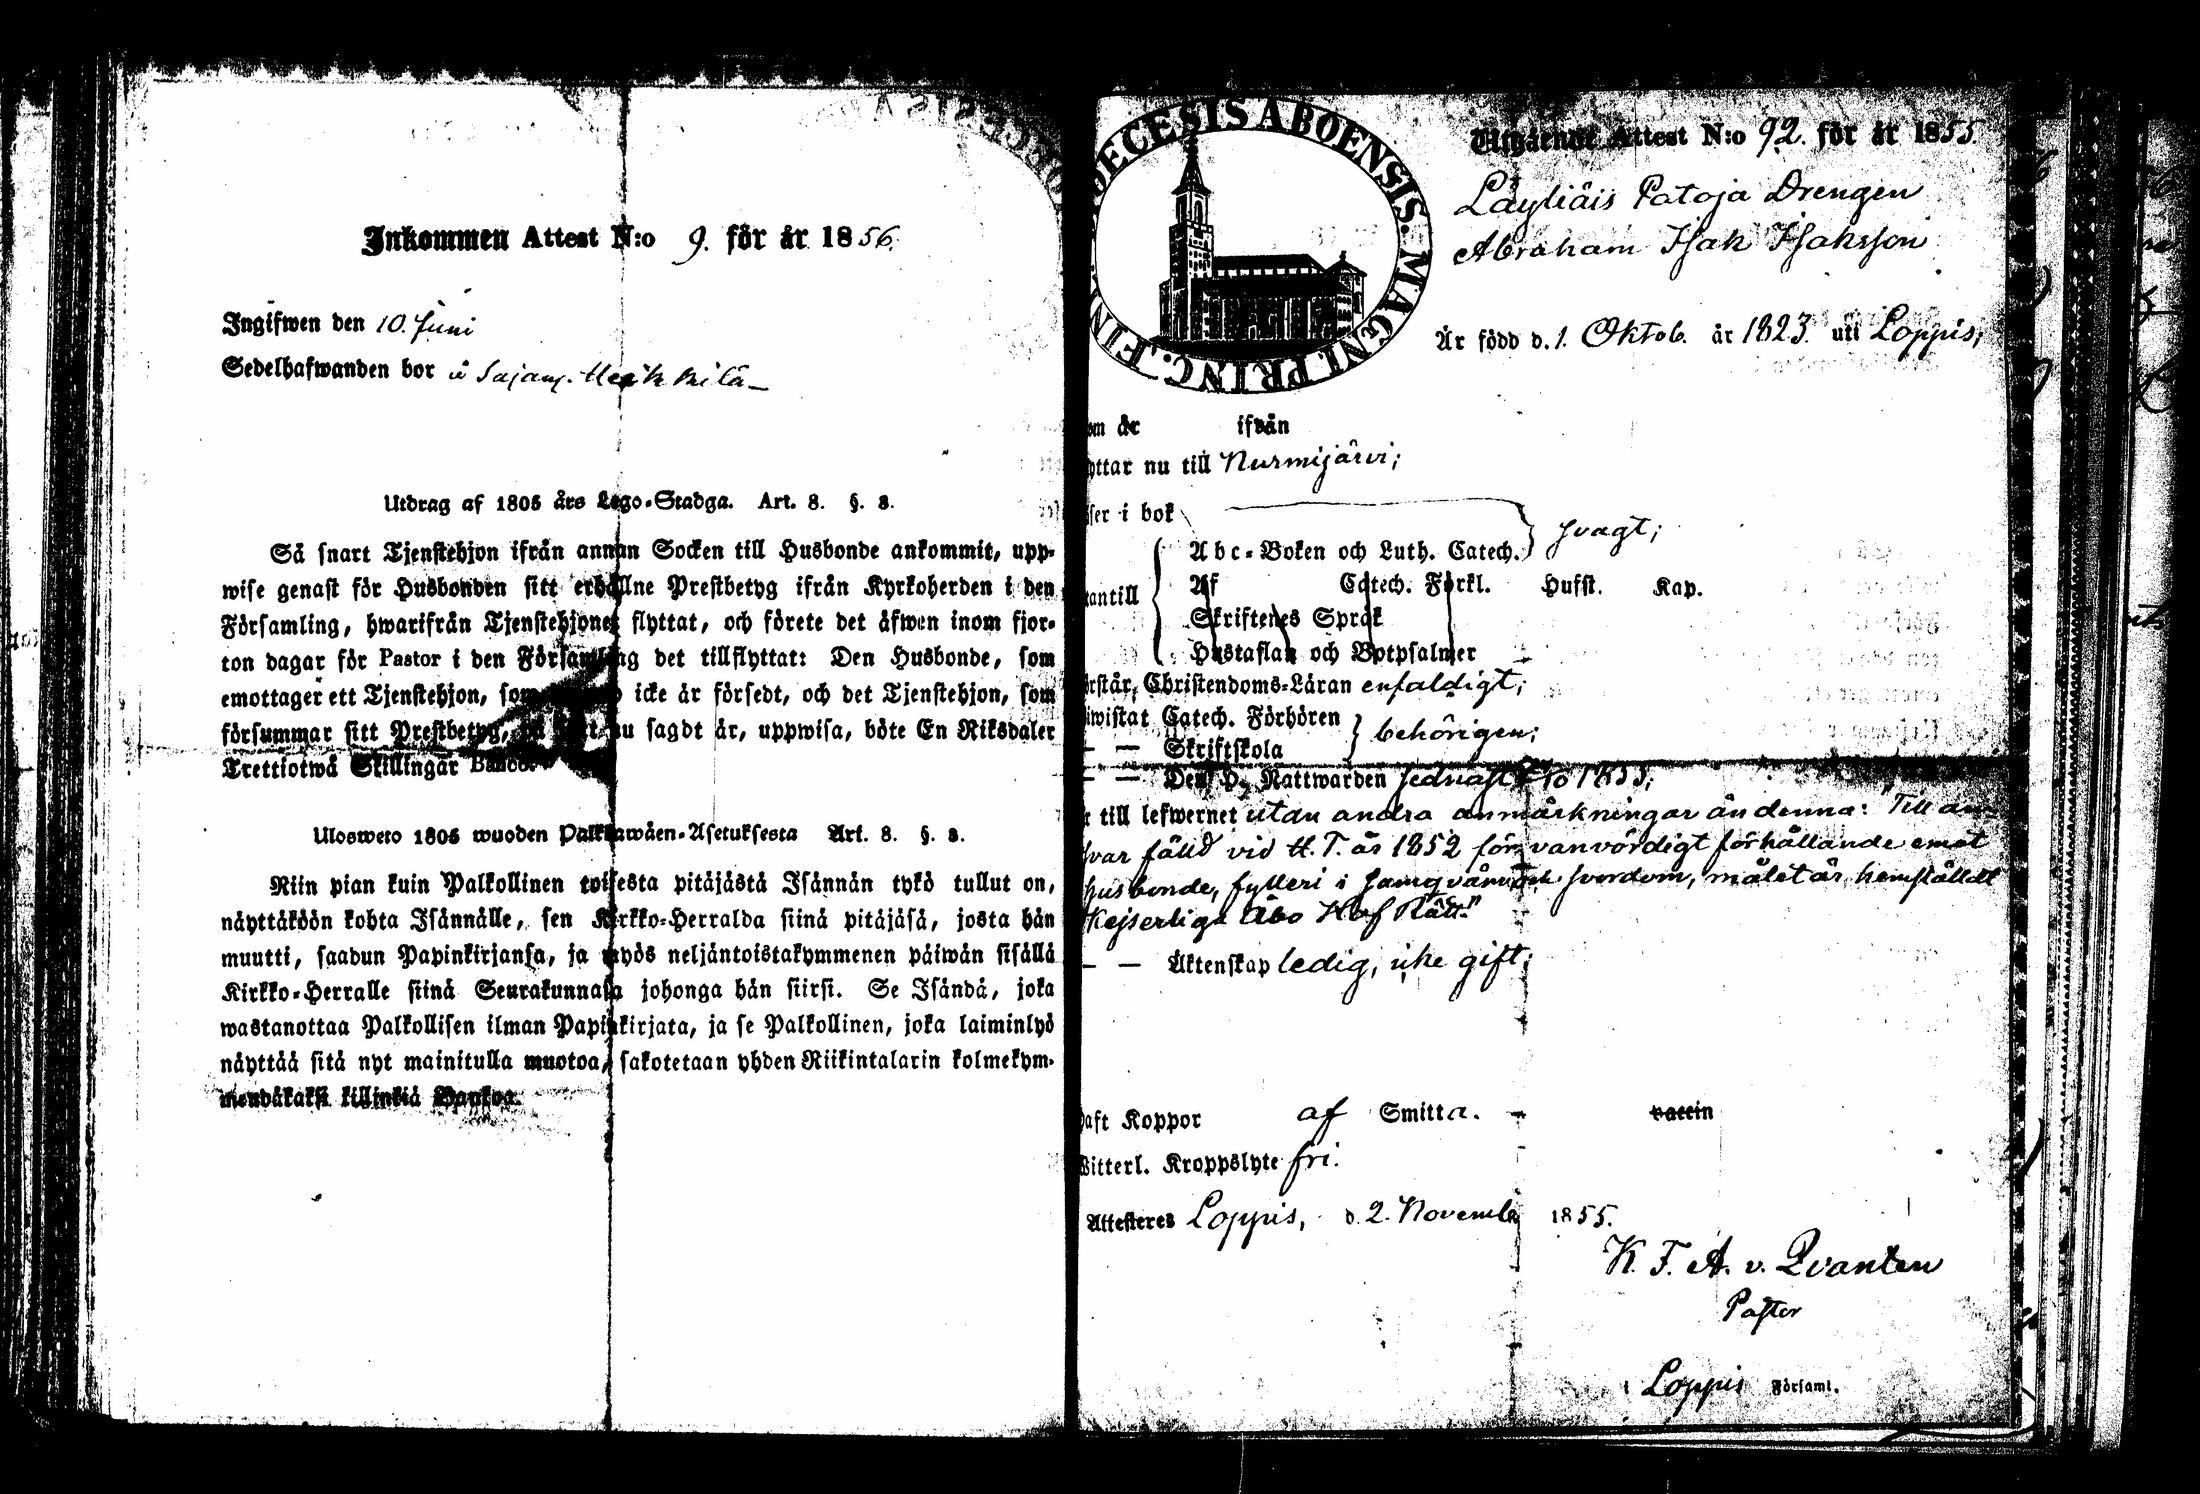 Inkommen Attest N:o 9. för år 1856.
Ingifwen den 10. Juni
Sedelhafwanden bor å
Utdrag af 1805 års Lego-Stadga. Art. 8. §. 3.
Så snart Tjenstehjon ifrån annan Socken till Husbonde ankommit, upp-
wise genast för Husbonden sitt erhållne Prestbetyg ifrån Kyrkoherden i den
Församling, hwarifrån Tjenstehjonet flyttat, och förete det äfwen inom fjor-
ton dagar för Pastor i den Församling det tillflyttat: Den Husbonde, som
emottager ett Tjenstehjon, som icke är försedt, och det Tjenstehjon, som
försummar sitt Prestbetyg, nu sagdt är, uppwisa, böte En Riksdaler
Trettiotwå Skillingar Banco.
Ulosweto 1805 wuoden Palkkawäen-Asetuksesta Art. 8. §. 3.
Niin pian kuin Palkollinen toisesta pitäjästä Isännän tykö tullut on,
näyttäköön kohta Isännälle, sen Kirkko-Herralda siinä pitäjäsä, josta hän
muutti, saadun Papinkirjansa, ja myös neljäntoistakymmenen päiwän sisällä
Kirkko-Herralle siinä Seurakunnasa johonga hän siirsi. Se Isändä, joka
wastanottaa Palkollisen ilman Papinkirjata, ja se Palkollinen, joka laiminlyö
näyttää sitä nyt mainitulla muotoa, sakotetaan yhden Riikintalarin kolmekym-
mendäkaksi killinkiä Bankoa.
DECESIS ABOENSIS. MAGNI PRINC. FIN
Utgående Attest N:o 92. för år 1855.
Läyliäis Patoja Drengen
Abraham Isak Isaksson
Är född d. 1. Oktob. år 1823. uti Loppis;
om år ifrån
yttar nu till Nurmijärvi;
ser i bok
Abc-Boken och Luth. Catech. svagt;
antill Af Catech. Förkl. Husst. Kap.
Skriftenes Språk
Hustaflan och Botpsalmer
rstår Christendoms-Läran enfaldigt;
iwistat Catech. Förhören behörigen;
— — Skriftskola
— — Den H. Nattwarden sednast 1855;
r till lefwernet utan andra anmärkningar än denna: "Till an-
svar fälld vid H. T. år 1852 för vanvördigt förhållande emot
husbonde, fylleri i samqväm och svordom, målet är hemställdt
Kejserliga Åbo Hof Rätt."
— — Äktenskap ledig, icke gift;
haft Koppor af Smitta. vaccin
Witterl. Kroppslyte fri.
Attesteres Loppis, d. 2. Novemb. 1855.
K. F. A. v. Qvanten
Pastor
i Loppis Församl.